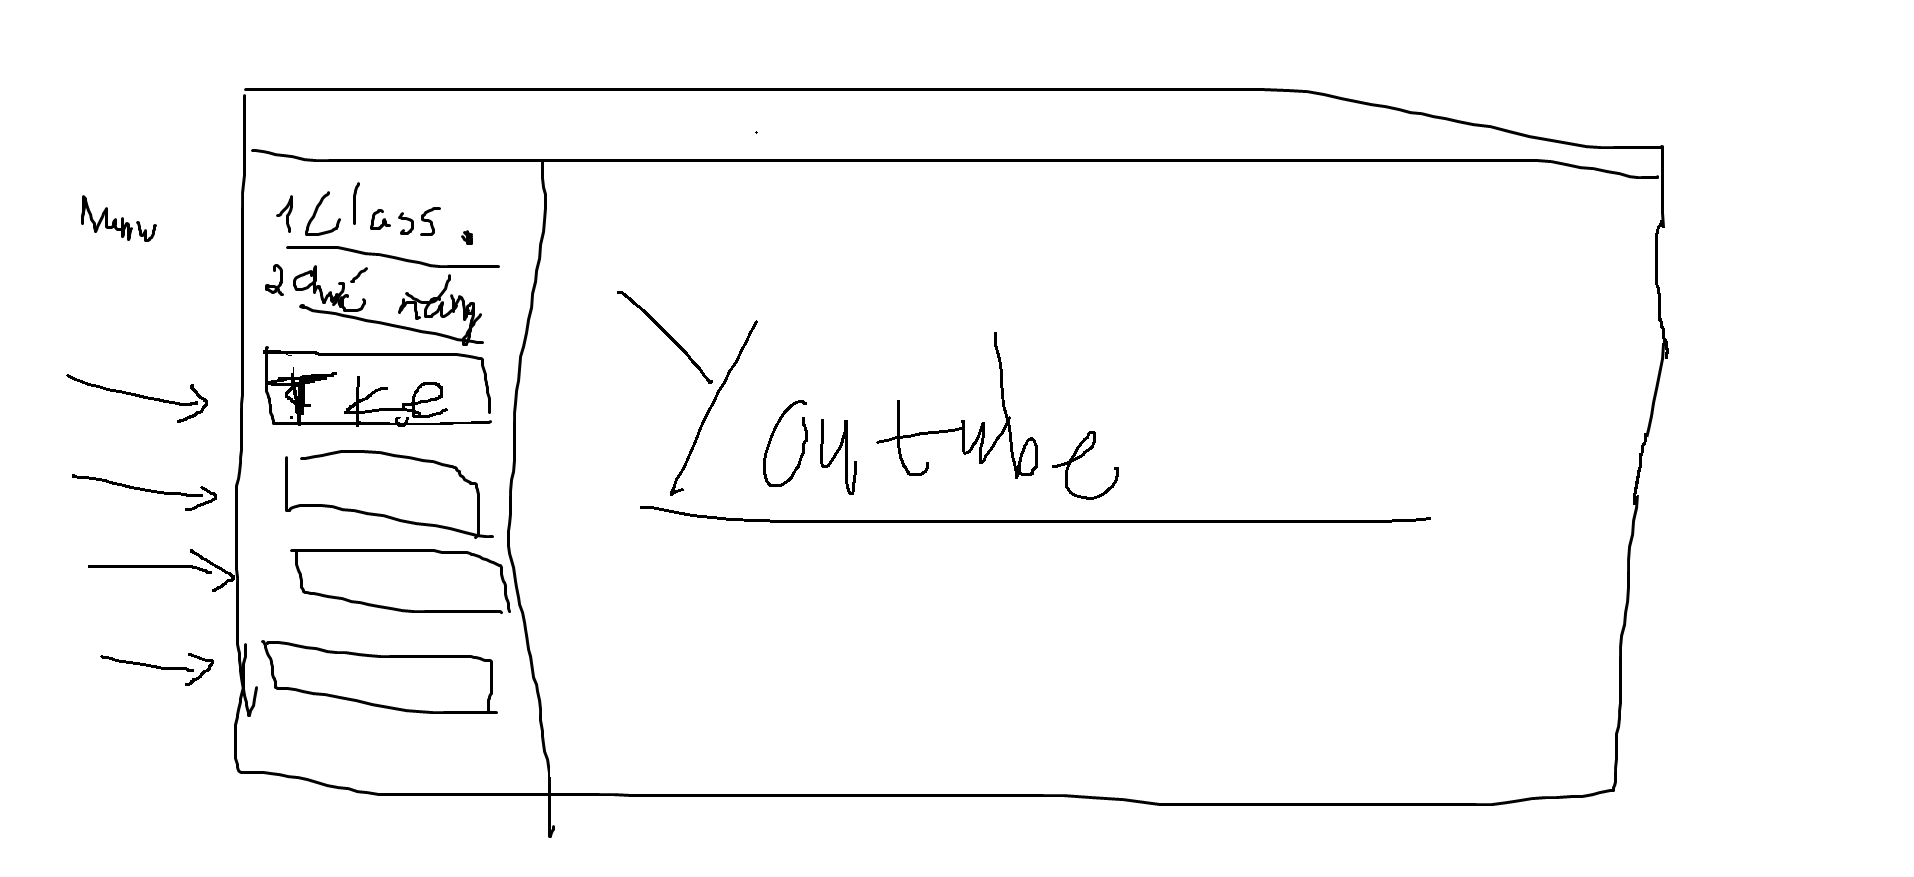 Menu
1 Class.
2 chức năng
T K.e
Youtube